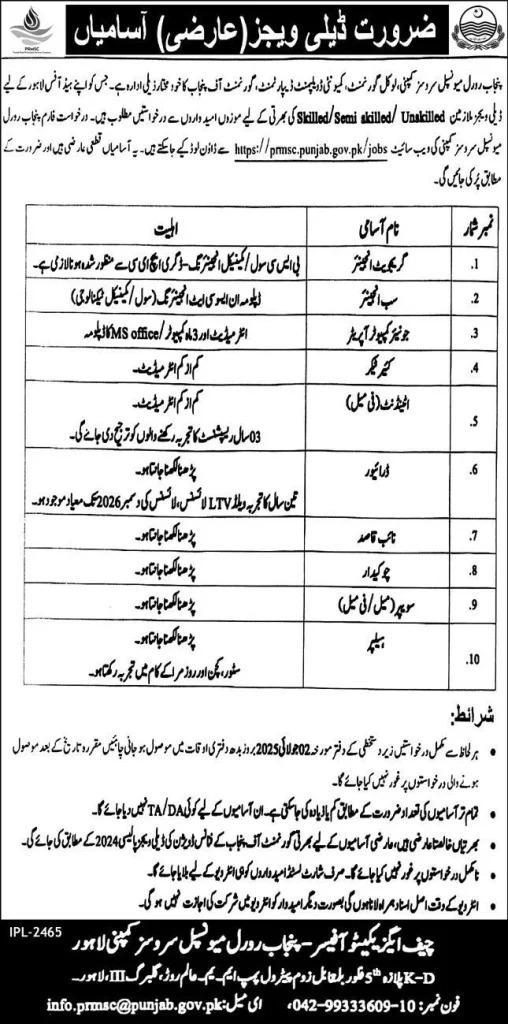 PRMSC
ضرورت ڈیلی ویجز (عارضی) آسامیاں
پنجاب رورل میونسپل سروسز کمپنی، لوکل گورنمنٹ، کمیونٹی ڈویلپمنٹ ڈیپارٹمنٹ، گورنمنٹ آف پنجاب کا خود مختار ذیلی ادارہ ہے۔ جس کو اپنے ہیڈ آفس لاہور کے لیے
ڈیلی ویجز ملازمین Skilled/Semi skilled/ Unskilled کی بھرتی کے لیے موزوں امیدواروں سے درخواستیں مطلوب ہیں۔ درخواست فارم پنجاب رورل
میونسپل سروسز کمپنی کی ویب سائیٹ https://prmsc.punjab.gov.pk/jobs سے ڈاؤن لوڈ کیے جاسکتے ہیں۔ یہ آسامیاں قطعی عارضی ہیں اور ضرورت کے
مطابق پُر کی جائیں گی۔
نمبر شمار نام آسامی اہلیت
1. گریجویٹ انجینئر بی ایس سی سول/مکینیکل انجینئرنگ- ڈگری ایچ ای سی سے منظور شدہ ہونا لازمی ہے۔
2. سب انجینئر ڈپلومہ ان ایسوسی ایٹ انجینئرنگ (سول/مکینیکل ٹیکنالوجی)
3. جونیئر کمپیوٹر آپریٹر انٹر میڈیٹ اور 3 ماہ کمپیوٹر/MS office کا ڈپلومہ
4. کیئر ٹیکر کم از کم انٹر میڈیٹ۔
5. اٹینڈنٹ (فی میل) کم از کم انٹر میڈیٹ۔
03 سال ریسپشنسٹ کا تجربہ رکھنے والوں کو ترجیح دی جائے گی۔
6. ڈرائیور پڑھنا لکھنا جانتا ہو۔
تین سال کا تجربہ ویلڈ LTV لائسنس، لائسنس کی دسمبر 2026 تک معیاد موجود ہو۔
7. نائب قاصد پڑھنا لکھنا جانتا ہو۔
8. چوکیدار پڑھنا لکھنا جانتا ہو۔
9. سویپر (میل/فی میل) پڑھنا لکھنا جانتا ہو۔
10. ہیلپر پڑھنا لکھنا جانتا ہو۔
سٹور، کچن اور روز مرا کے کام میں تجربہ رکھتا ہو۔
شرائط:
• ہر لحاظ سے مکمل درخواستیں زیر دستخطی کے دفتر مورخہ 02 جولائی 2025 بروز بدھ دفتری اوقات میں موصول ہو جانی چاہئیں مقررہ تاریخ کے بعد موصول
ہونے والی درخواستوں پر غور نہیں کیا جائے گا۔
• تمام تر آسامیوں کی تعداد ضرورت کے مطابق کم یا زیادہ کی جاسکتی ہے۔ ان آسامیوں کے لیے کوئی TA/DA نہیں دیا جائے گا۔
• بھرتیاں خالصتاً عارضی ہیں، عارضی آسامیوں کے لیے بھرتی گورنمنٹ آف پنجاب کے فنانس ڈویژن کی ڈیلی ویجز پالیسی 2024 کے مطابق کی جائے گی۔
• نامکمل درخواستوں پر غور نہیں کیا جائے گا۔ صرف شارٹ لسٹڈ امیدواروں کو ہی انٹرویو کے لیے بلایا جائے گا۔
• انٹرویو کے وقت اصل اسناد ہمراہ لانا ہوں گی بصورت دیگر امیدوار کو انٹرویو میں شرکت کی اجازت نہیں ہو گی۔
IPL-2465
چیف ایگزیکیٹو آفیسر - پنجاب رورل میونسپل سروسز کمپنی لاہور
K-D پلازہ 5th فلور بلمقابل زوم پیٹرول پمپ ایم۔ ایم۔ عالم روڈ، گلبرگ III، لاہور۔
فون نمبر: 042-99333609-10، ای میل: info.prmsc@punjab.gov.pk